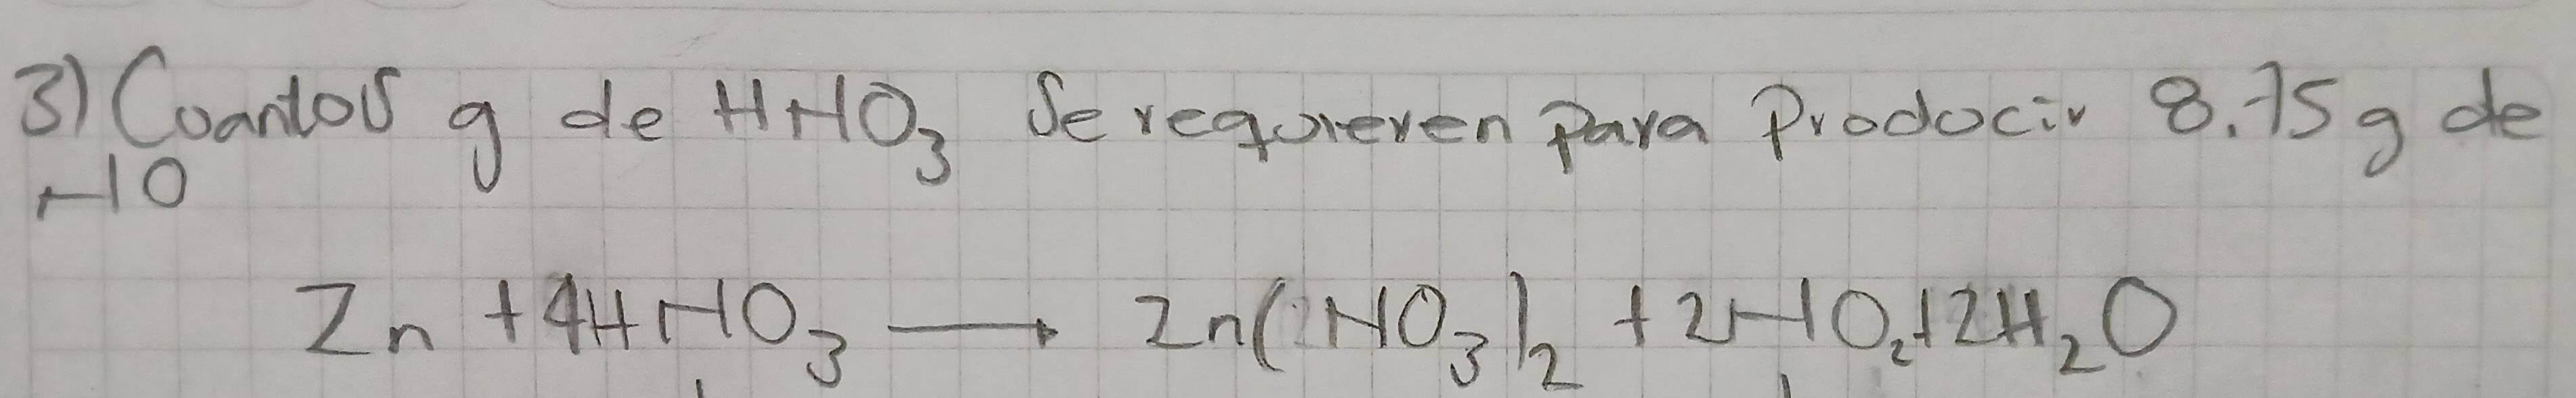 3) Cuantos g de HNO₃ se requieren para Producir 8.75g de
NO
Zn + 4HNO₃ → Zn(NO₃)₂ + 2NO₂+2H₂O